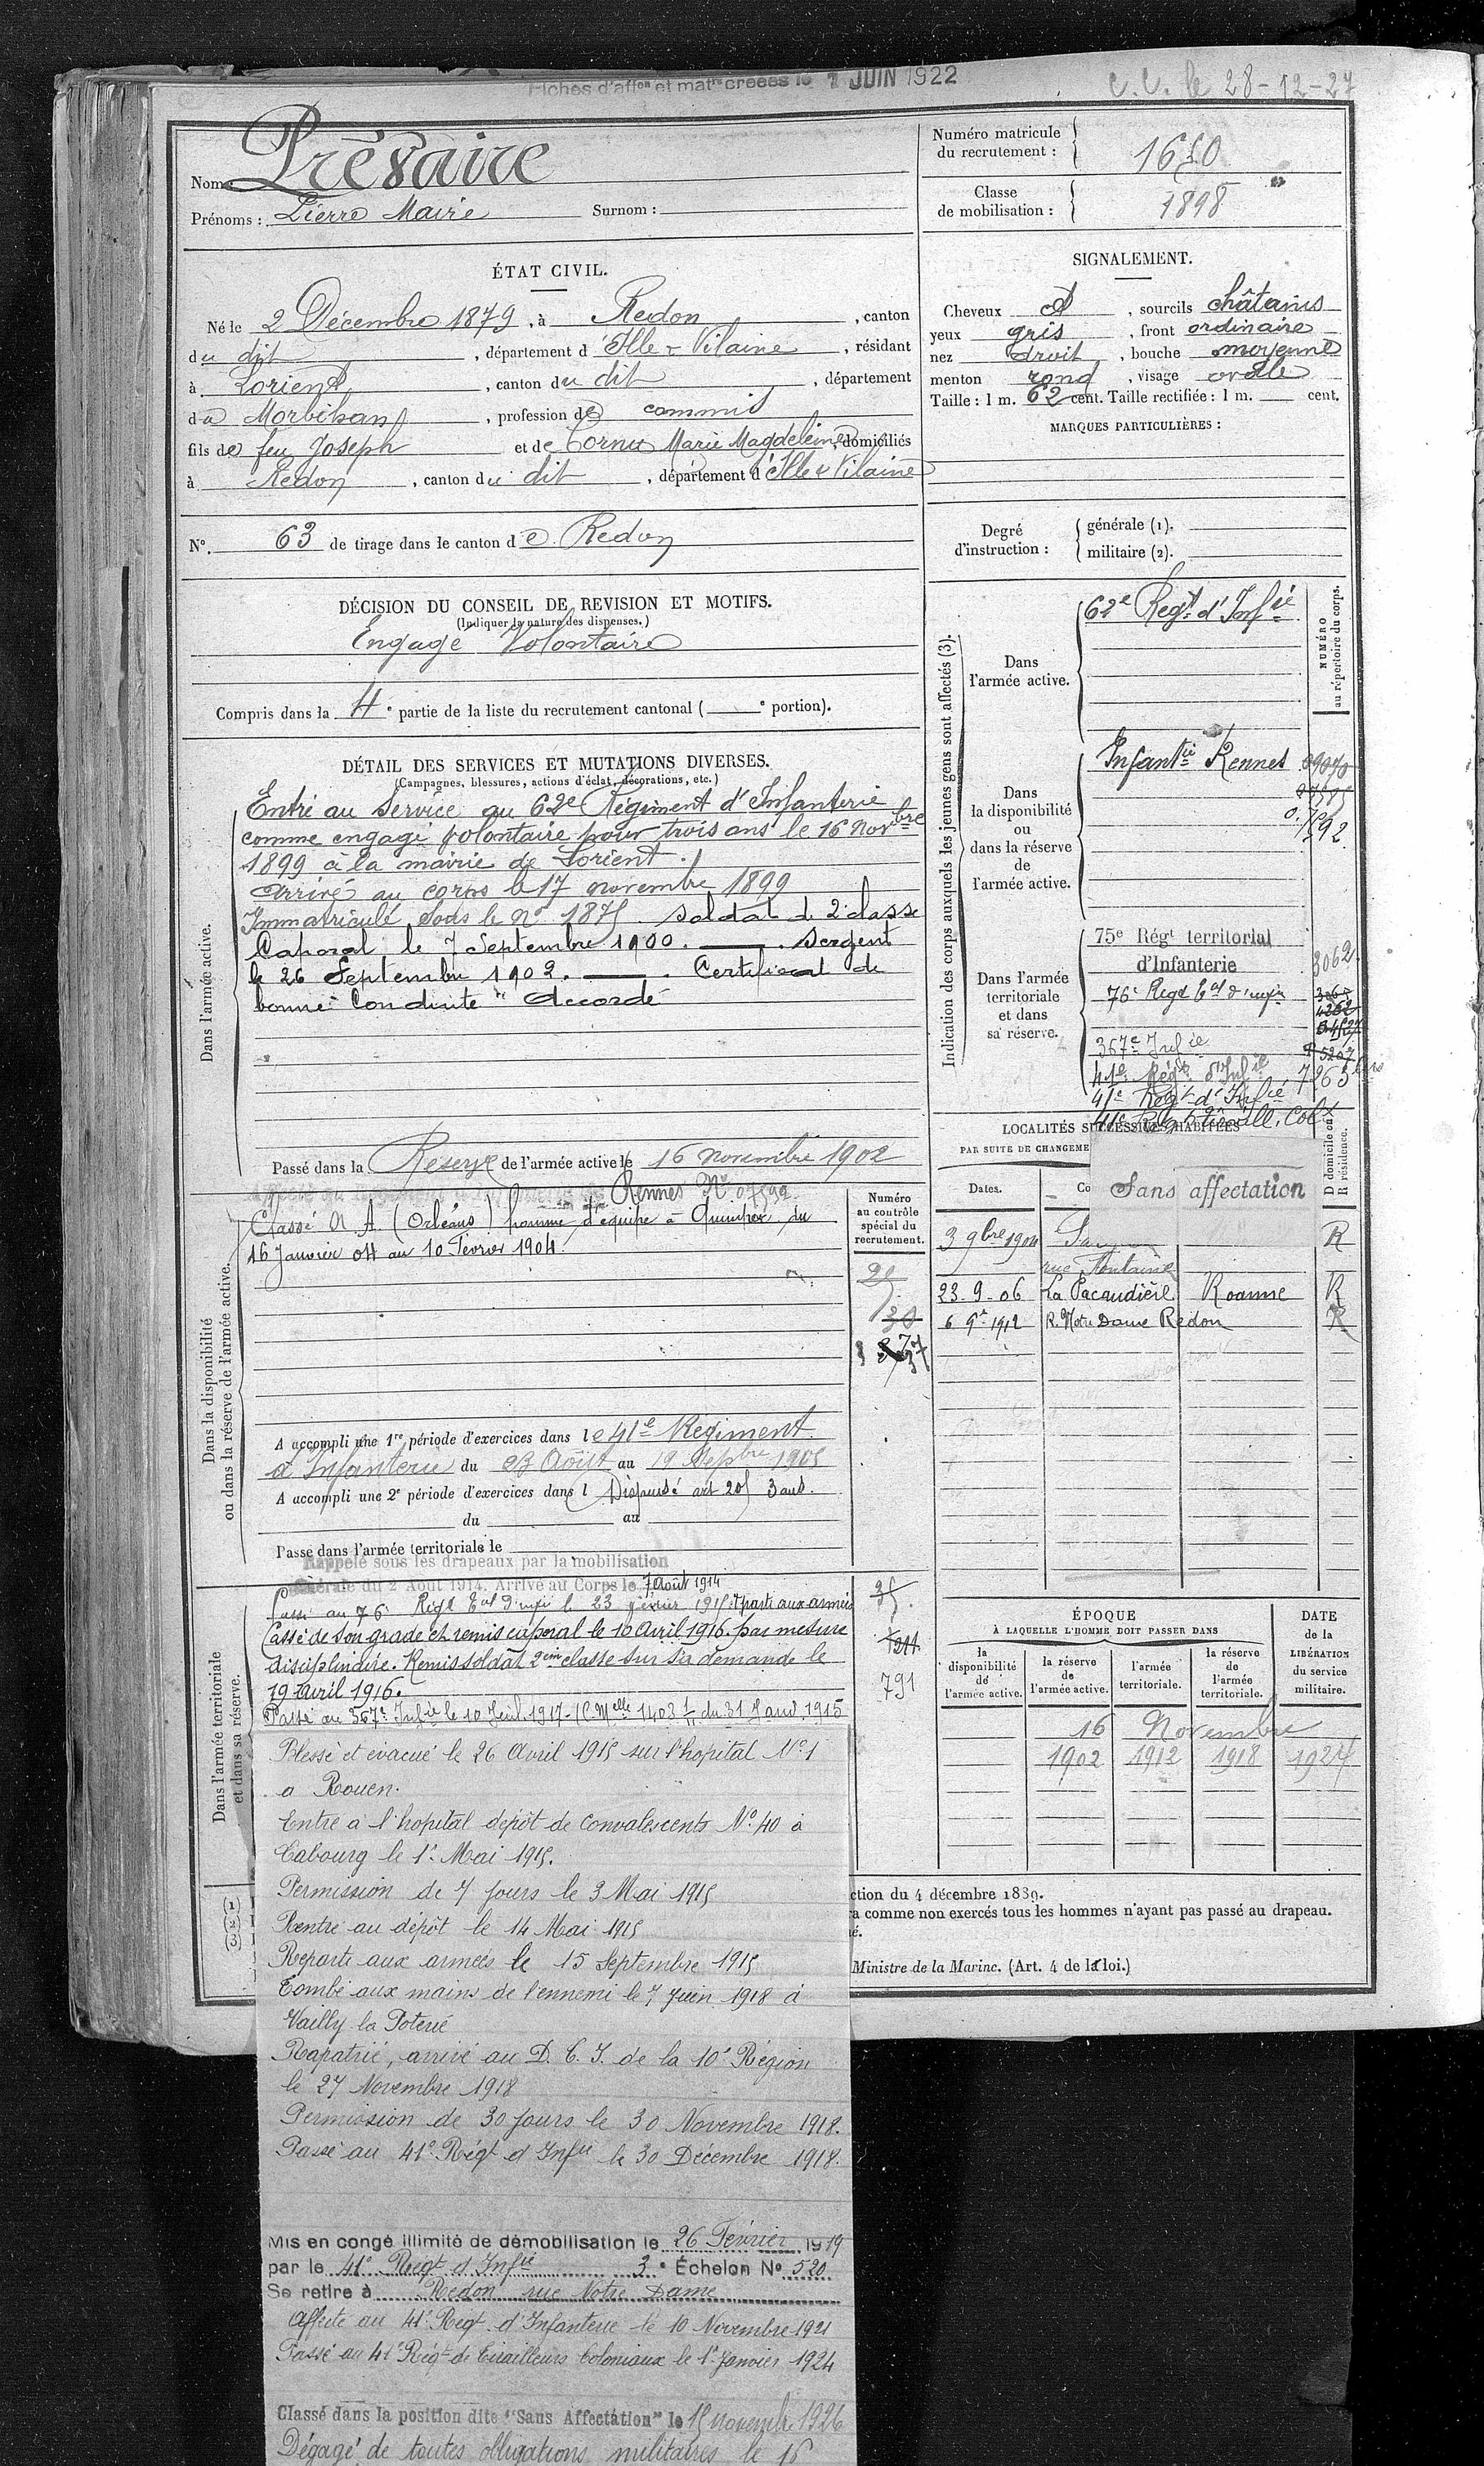 Fiches d'affon et matre créées le 1 JUIN 1922
C.V. le 28-12-27
Nom: Présaire
Prénoms: Pierre Marie Surnom:
Numéro matricule du recrutement: 1650
Classe de mobilisation: 1898
ÉTAT CIVIL.
Né le 2 Décembre 1879, à Redon, canton
du dit, département d'Ille & Vilaine, résidant
à Lorient, canton du dit, département
du Morbihan, profession de commis
fils de feu Joseph et de Cornu Marie Magdeleine domiciliés
à Redon, canton du dit, département d'Ille & Vilaine
N°. 63 de tirage dans le canton de Redon
SIGNALEMENT.
Cheveux et, sourcils châtains
yeux gris, front ordinaire
nez droit, bouche moyenne
menton rond, visage ovale
Taille: 1 m. 62 cent. Taille rectifiée: 1 m. cent.
MARQUES PARTICULIÈRES:
Degré d'instruction: générale (1).
militaire (2).
DÉCISION DU CONSEIL DE REVISION ET MOTIFS.
(Indiquer la nature des dispenses.)
Engagé Volontaire
Compris dans la 4e partie de la liste du recrutement cantonal ( e portion).
DÉTAIL DES SERVICES ET MUTATIONS DIVERSES.
(Campagnes, blessures, actions d'éclat, décorations, etc.)
Dans l'armée active.
Entré au service au 62e Régiment d'Infanterie
comme engagé volontaire pour trois ans le 16 Novbre
1899 à la mairie de Lorient.
Arrivé au corps le 17 novembre 1899
Immatriculé sous le N° 1875. soldat de 2e classe
Caporal le 7 Septembre 1900. Sergent
le 26 Septembre 1902. Certificat de
bonne Conduite "Accordé"
Passé dans la Réserve de l'armée active le 16 novembre 1902
Indication des corps auxquels les jeunes gens sont affectés (3).
NUMÉRO au répertoire du corps.
Dans l'armée active.
62e Regt d'Infie
Dans la disponibilité ou dans la réserve de l'armée active.
Infantie Rennes
Dans l'armée territoriale et dans sa réserve.
75e Régt territorial
d'Infanterie 3062
76e Regt Tal d'infie
367e Infie 5207
41e Régt d'Infie 7263 bis
41e Régt d'Infie
41e Régt Tiraill. Colx
LOCALITÉS SUCCESSIVES HABITÉES
PAR SUITE DE CHANGEME
D domicile ou R résidence.
Dates. Co
Sans affectation
3 9bre 1904 R
rue Fontaine
23-9-06 La Pacaudière Roanne R
6 9e 1912 R. Notre Dame Redon R
Dans la disponibilité ou dans la réserve de l'armée active.
Rennes N° 07592
Numéro au contrôle spécial du recrutement.
Classé N. A. (Orléans) homme d'équipe à Quimper du
16 Janvier 04 au 10 Février 1904.
A accompli une 1re période d'exercices dans le 41e Régiment
d'Infanterie du 23 Août au 19 Sepbre 1905
A accompli une 2e période d'exercices dans l Dispensé art 20 3 ans.
du au
Passé dans l'armée territoriale le
Rappelé sous les drapeaux par la mobilisation
générale du 2 Août 1914. Arrivé au Corps le 7 Août 1914
Dans l'armée territoriale et dans sa réserve.
Passé au 76e Régt Tal d'infie le 23 février 1915. Parti aux armées
Cassé de son grade et remis caporal le 10 Avril 1916. par mesure
disciplinaire. Remis soldat 2ème classe sur sa demande le
19 Avril 1916.
791
ÉPOQUE
À LAQUELLE L'HOMME DOIT PASSER DANS
la disponibilité de l'armée active.
la réserve de l'armée active.
l'armée territoriale.
la réserve de l'armée territoriale.
DATE de la LIBÉRATION du service militaire.
16 Novembre
1902 1912 1918 1924
Blessé et évacué le 26 Avril 1915 sur l'hopital N° 1
a Rouen.
Entré a l'hopital dépot de convalescents N° 40 à
Cabourg le 1er Mai 1915.
Permission de 7 jours le 3 Mai 1915
Rentré au dépôt le 14 Mai 1915
Reparti aux armées le 15 Septembre 1915
Tombé aux mains de l'ennemi le 7 Juin 1918 à
Vailly la Poterie
Rapatrié, arrivé au D. C. I. de la 10e Région
le 27 Novembre 1918
Permission de 30 jours le 30 Novembre 1918.
Passé au 41e Régt d'Infie le 30 Décembre 1918.
Mis en congé illimité de démobilisation le 26 Février 1919
par le 41e Régt d'Infie 3e Échelon N° 520
Se retire à Redon rue Notre Dame
Affecté au 41e Regt d'Infanterie le 10 Novembre 1921
Passé au 41e Régt de Tirailleurs Coloniaux le 1er Janvier 1924
Classé dans la position dite "Sans Affectation" le 15 novembre 1926
Dégagé de toutes obligations militaires le 16
(1)
(2)
(3)
ction du 4 décembre 1889.
ra comme non exercés tous les hommes n'ayant pas passé au drapeau.
é.
Ministre de la Marine. (Art. 4 de la loi.)